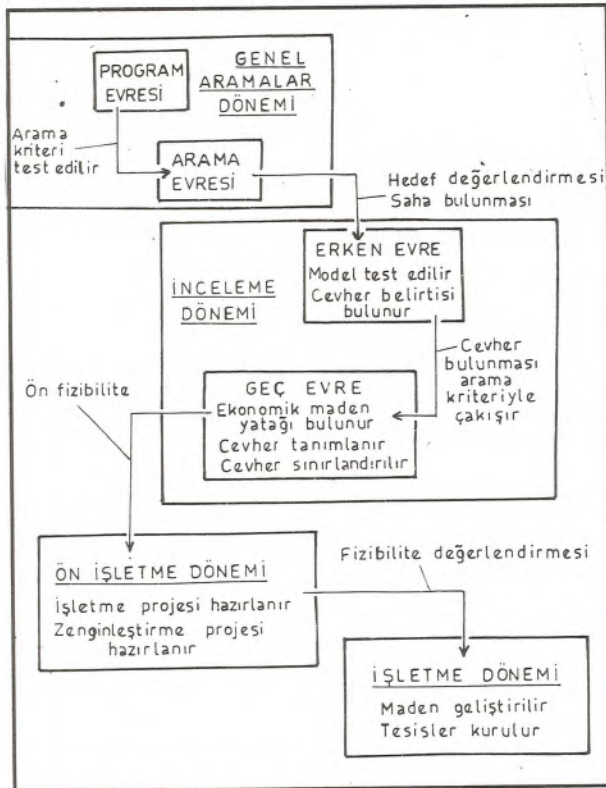 GENEL
ARAMALAR
DÖNEMİ
PROGRAM
EVRESİ
Arama
kriteri
test edilir
ARAMA
EVRESİ
Hedef değerlendirmesi
Saha bulunması
İNCELEME
DÖNEMİ
ERKEN EVRE
Model test edilir
Cevher belirtisi
bulunur
Cevher
bulunması
arama
kriteriyle
çakışır
GEÇ EVRE
Ekonomik maden
yatağı bulunur
Cevher tanımlanır
Cevher sınırlandırılır
Ön fizibilite
ÖN İŞLETME DÖNEMİ
İşletme projesi hazırlanır
Zenginleştirme projesi
hazırlanır
Fizibilite değerlendirmesi
İŞLETME DÖNEMİ
Maden geliştirilir
Tesisler kurulur